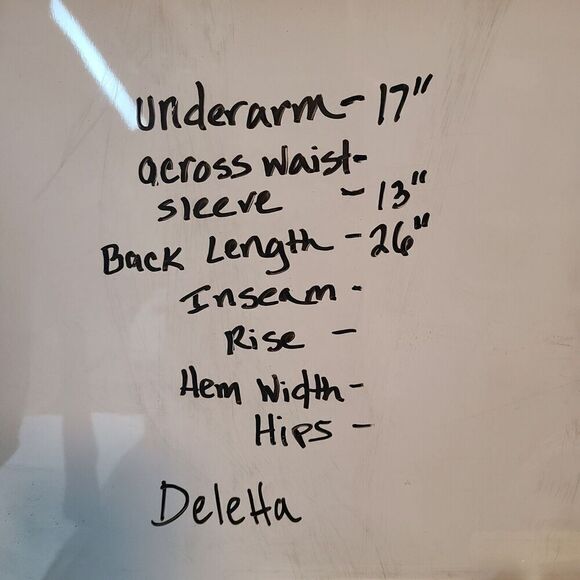 underarm - 17"
across waist-
sleeve - 13"
Back Length - 26"
Inseam -
Rise -
Hem Width -
Hips -
Deletta